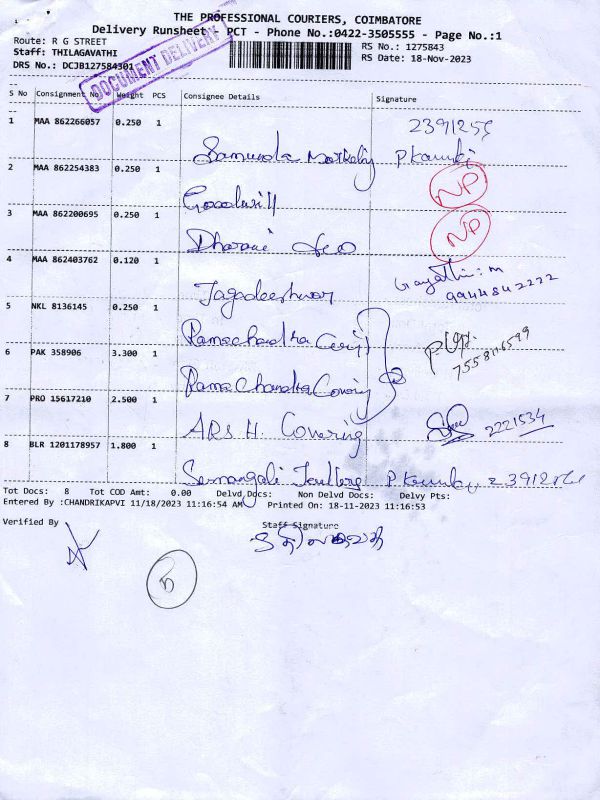 THE PROFESSIONAL COURIERS, COIMBATORE
Delivery Runsheet - PCT - Phone No.:0422-3505555 - Page No.:1
Route: R G STREET
RS No.: 1275843
Staff: THILAGAVATHI
RS Date: 18-Nov-2023
DRS No.: DCJB127584301
DOCUMENT DELIVERY
S No Consignment No Weight PCS Consignee Details Signature
1 MAA 862266057 0.250 1
2 MAA 862254383 0.250 1 Goodwill NP
3 MAA 862200695 0.250 1 Dharani NP
4 MAA 862403762 0.120 1 Jagadeeshwar Gayathri . m
9944842222
5 NKL 8136145 0.250 1 Ramachandra
6 PAK 358906 3.300 1 Rama Chandra Covering
7 PRO 15617210 2.500 1 ARS H. Covering 2221534
8 BLR 1201178957 1.800 1
Tot Docs: 8 Tot COD Amt: 0.00 Delvd Docs: Non Delvd Docs: Delvy Pts:
Entered By :CHANDRIKAPVI 11/18/2023 11:16:54 AM Printed On: 18-11-2023 11:16:53
Verified By
Staff Signature
5